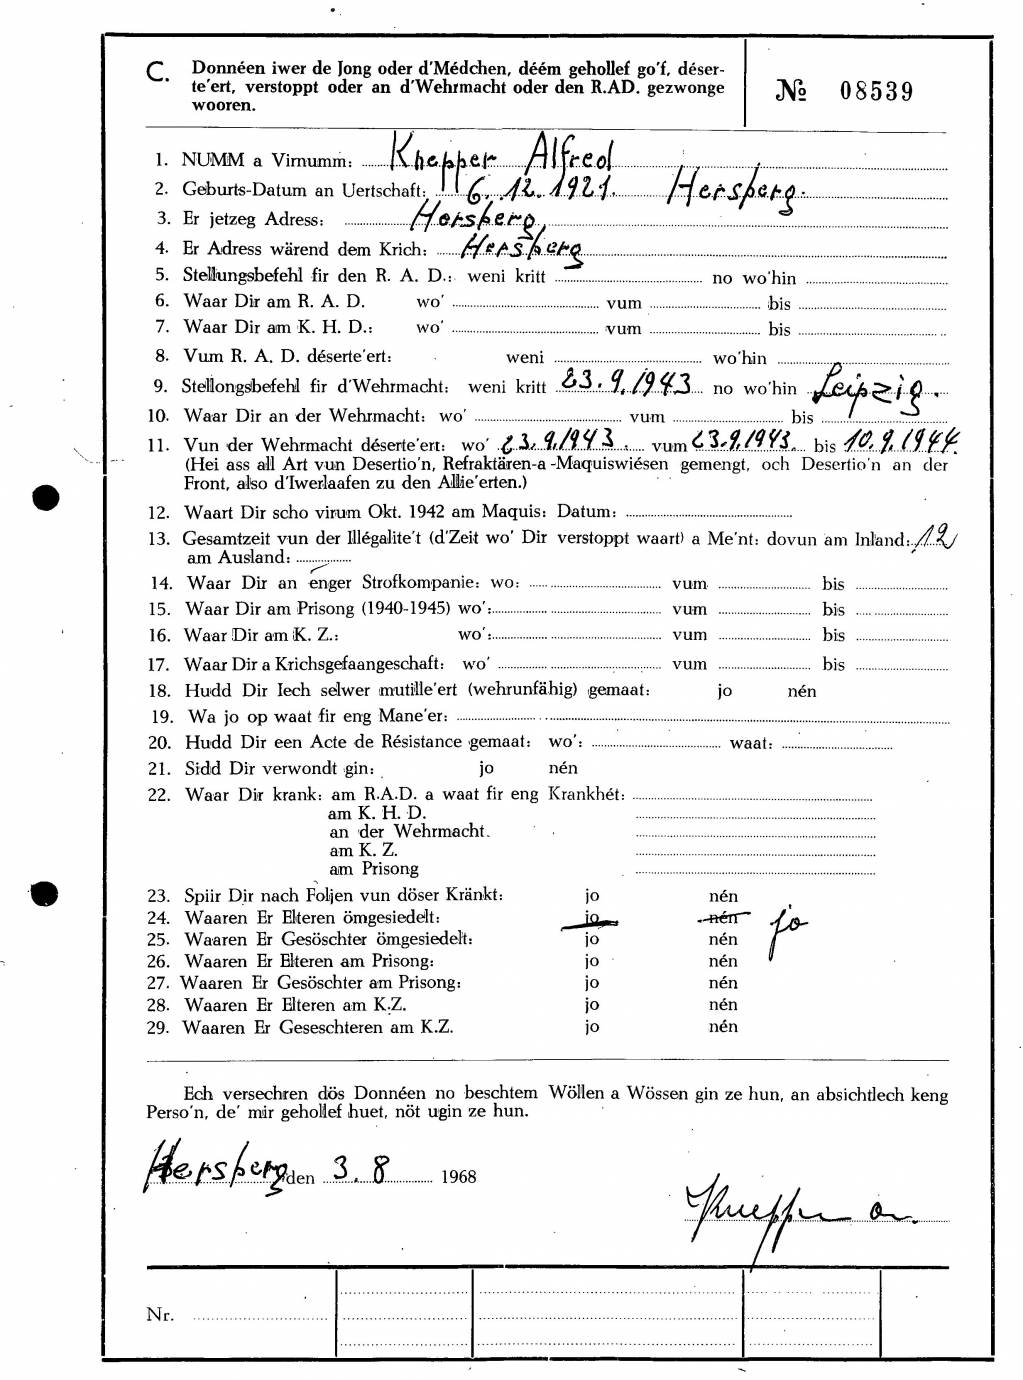 C. Donnéen iwer de Jong oder d'Médchen, déém gehollef go'f, déser-
te'ert, verstoppt oder an d'Wehrmacht oder den R.AD. gezwonge
wooren.
№ 08539
1. NUMM a Virnumm: Knepper Alfred
2. Geburts-Datum an Uertschaft: 6.12.1921 Hersberg.
3. Er jetzeg Adress: Hersberg
4. Er Adress wärend dem Krich: Hersberg
5. Stellungsbefehl fir den R. A. D.: weni kritt no wo'hin
6. Waar Dir am R. A. D. wo' vum bis
7. Waar Dir am K. H. D.: wo' vum bis
8. Vum R. A. D. déserte'ert: weni wo'hin
9. Stellongsbefehl fir d'Wehrmacht: weni kritt 23.9.1943 no wo'hin Leipzig.
10. Waar Dir an der Wehrmacht: wo' vum bis
11. Vun der Wehrmacht déserte'ert: wo' 23.9.1943 vum 23.9.1943. bis 10.9.1944.
(Hei ass all Art vun Desertio'n, Refraktären-a-Maquiswiésen gemengt, och Desertio'n an der
Front, also d'Iwerlaafen zu den Allie'erten.)
12. Waart Dir scho virum Okt. 1942 am Maquis: Datum:
13. Gesamtzeit vun der Illégalite't (d'Zeit wo' Dir verstoppt waart) a Me'nt: dovun am Inland: 12
am Ausland:
14. Waar Dir an enger Strofkompanie: wo: vum bis
15. Waar Dir am Prisong (1940-1945) wo': vum bis
16. Waar Dir am K. Z.: wo': vum bis
17. Waar Dir a Krichsgefaangeschaft: wo' vum bis
18. Hudd Dir Iech selwer mutille'ert (wehrunfähig) gemaat: jo nén
19. Wa jo op waat fir eng Mane'er:
20. Hudd Dir een Acte de Résistance gemaat: wo': waat:
21. Sidd Dir verwondt gin: jo nén
22. Waar Dir krank: am R.A.D. a waat fir eng Krankhét:
am K. H. D.
an der Wehrmacht.
am K. Z.
am Prisong
23. Spiir Dir nach Foljen vun döser Kränkt: jo nén
24. Waaren Er Elteren ömgesiedelt: jo nén jo
25. Waaren Er Gesöschter ömgesiedelt: jo nén
26. Waaren Er Elteren am Prisong: jo nén
27. Waaren Er Gesöschter am Prisong: jo nén
28. Waaren Er Elteren am K.Z. jo nén
29. Waaren Er Geseschteren am K.Z. jo nén
Ech versechren dös Donnéen no beschtem Wöllen a Wössen gin ze hun, an absichtlech keng
Perso'n, de' mir gehollef huet, nöt ugin ze hun.
Hersberg den 3.8 1968
Nr.